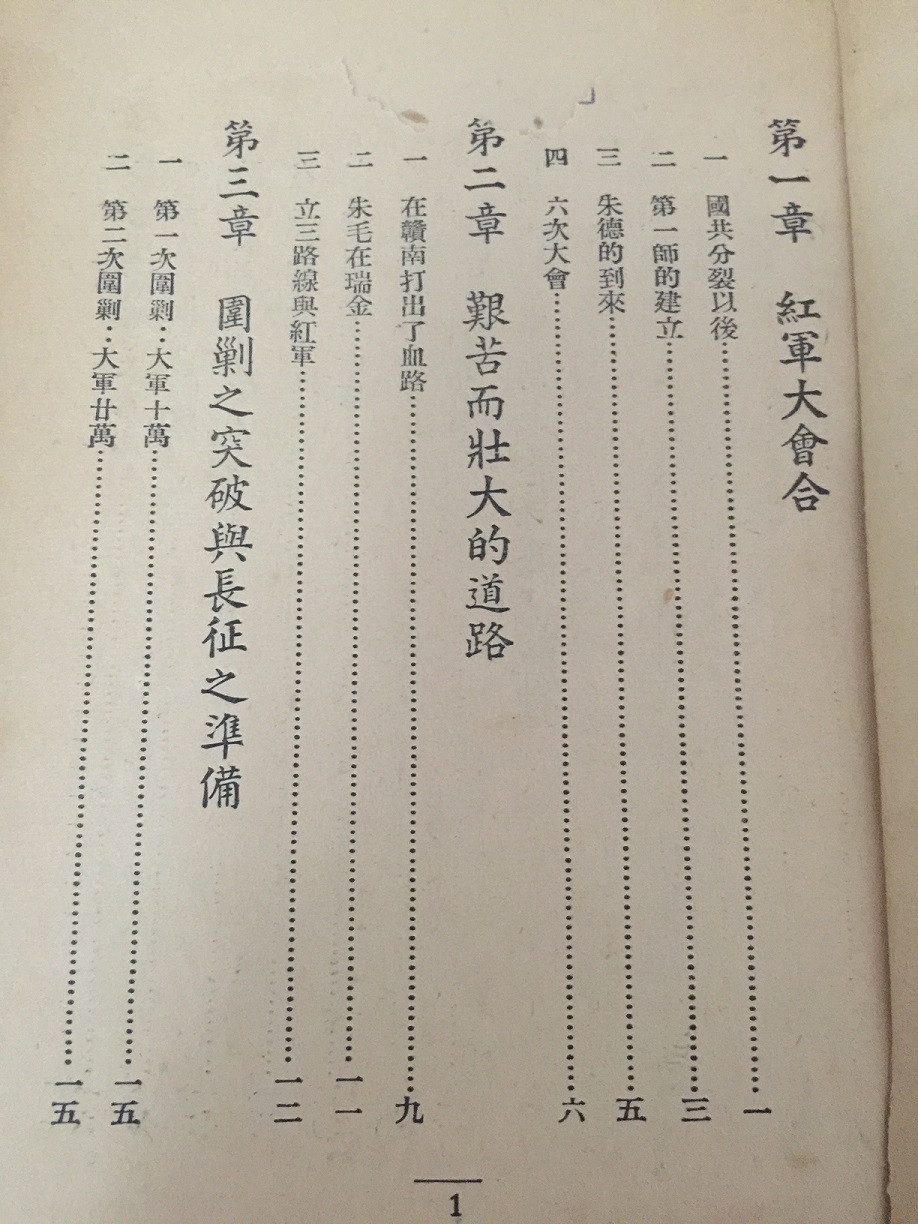 第一章　紅軍大會合
一　國共分裂以後……一
二　第一師的建立……三
三　朱德的到來……五
四　六次大會……六
第二章　艱苦而壯大的道路
一　在贛南打出了血路……九
二　朱毛在瑞金……一一
三　立三路線與紅軍……一二
第三章　圍剿之突破與長征之準備
一　第一次圍剿：大軍十萬……一五
二　第二次圍剿：大軍廿萬……一五
1